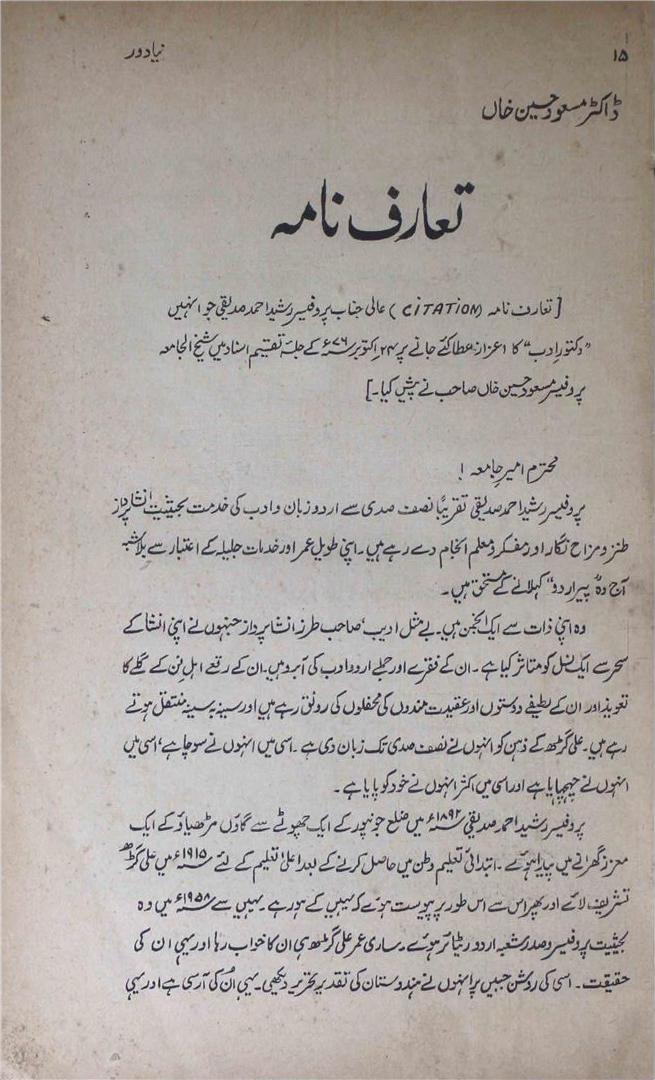 ۱۵
نیا دور
ڈاکٹر مسعود حسین خاں
تعارف نامہ
[ تعارف نامہ (CITATION) عالی جناب پروفیسر رشید احمد صدیقی جو انہیں
”دکتور ادب“ کا اعزاز عطا کئے جانے پر ۲۴ اکتوبر سنہ ۷۶ء کے جلسۂ تقسیم اسناد میں شیخ الجامعہ
پروفیسر مسعود حسین خاں صاحب نے پیش کیا۔]
محترم امیر جامعہ !
پروفیسر رشید احمد صدیقی تقریباً نصف صدی سے اردو زبان و ادب کی خدمت بحیثیت انشا پرداز
طنز و مزاح نگار اور مفکر و معلم انجام دے رہے ہیں۔ اپنی طویل عمر اور خدمات جلیلہ کے اعتبار سے بلا شبہ
آج وہ ”پیر اردو“ کہلانے کے مستحق ہیں۔
وہ اپنی ذات سے ایک انجمن ہیں۔ بے مثل ادیب، صاحب طرز انشا پرداز جنہوں نے اپنی انشا کے
سحر سے ایک نسل کو متاثر کیا ہے۔ ان کے فقرے اور جملے اردو ادب کی آبرو ہیں۔ ان کے رقعے اہل فن کے گلے کا
تعویذ اور ان کے لطیفے دوستوں اور عقیدت مندوں کی محفلوں کی رونق رہے ہیں اور سینہ بہ سینہ منتقل ہوتے
رہے ہیں۔ علی گڑھ کے ذہن کو انہوں نے نصف صدی تک زبان دی ہے۔ اسی میں انہوں نے سوچا ہے، اسی میں
انہوں نے چہچہایا ہے اور اسی میں اکثر انہوں نے خود کو پایا ہے۔
پروفیسر رشید احمد صدیقی سنہ ۱۸۹۲ء میں ضلع جونپور کے ایک چھوٹے سے گاؤں مڑھیاہو کے ایک
معزز گھرانے میں پیدا ہوئے۔ ابتدائی تعلیم وطن میں حاصل کرنے کے بعد اعلیٰ تعلیم کے لئے سنہ ۱۹۱۵ء میں علی گڑھ
تشریف لائے اور پھر اس سے اس طور پر پیوست ہوئے کہ یہیں کے ہو رہے۔ یہیں سے سنہ ۱۹۵۸ء میں وہ
بحیثیت پروفیسر و صدر شعبہ اردو ریٹائر ہوئے۔ ساری عمر علی گڑھ ہی ان کا خواب رہا اور یہی ان کی
حقیقت۔ اسی کی روشن جبیں پر انہوں نے ہندوستان کی تقدیر تحریر دیکھی۔ یہی ان کی آرسی ہے اور یہی